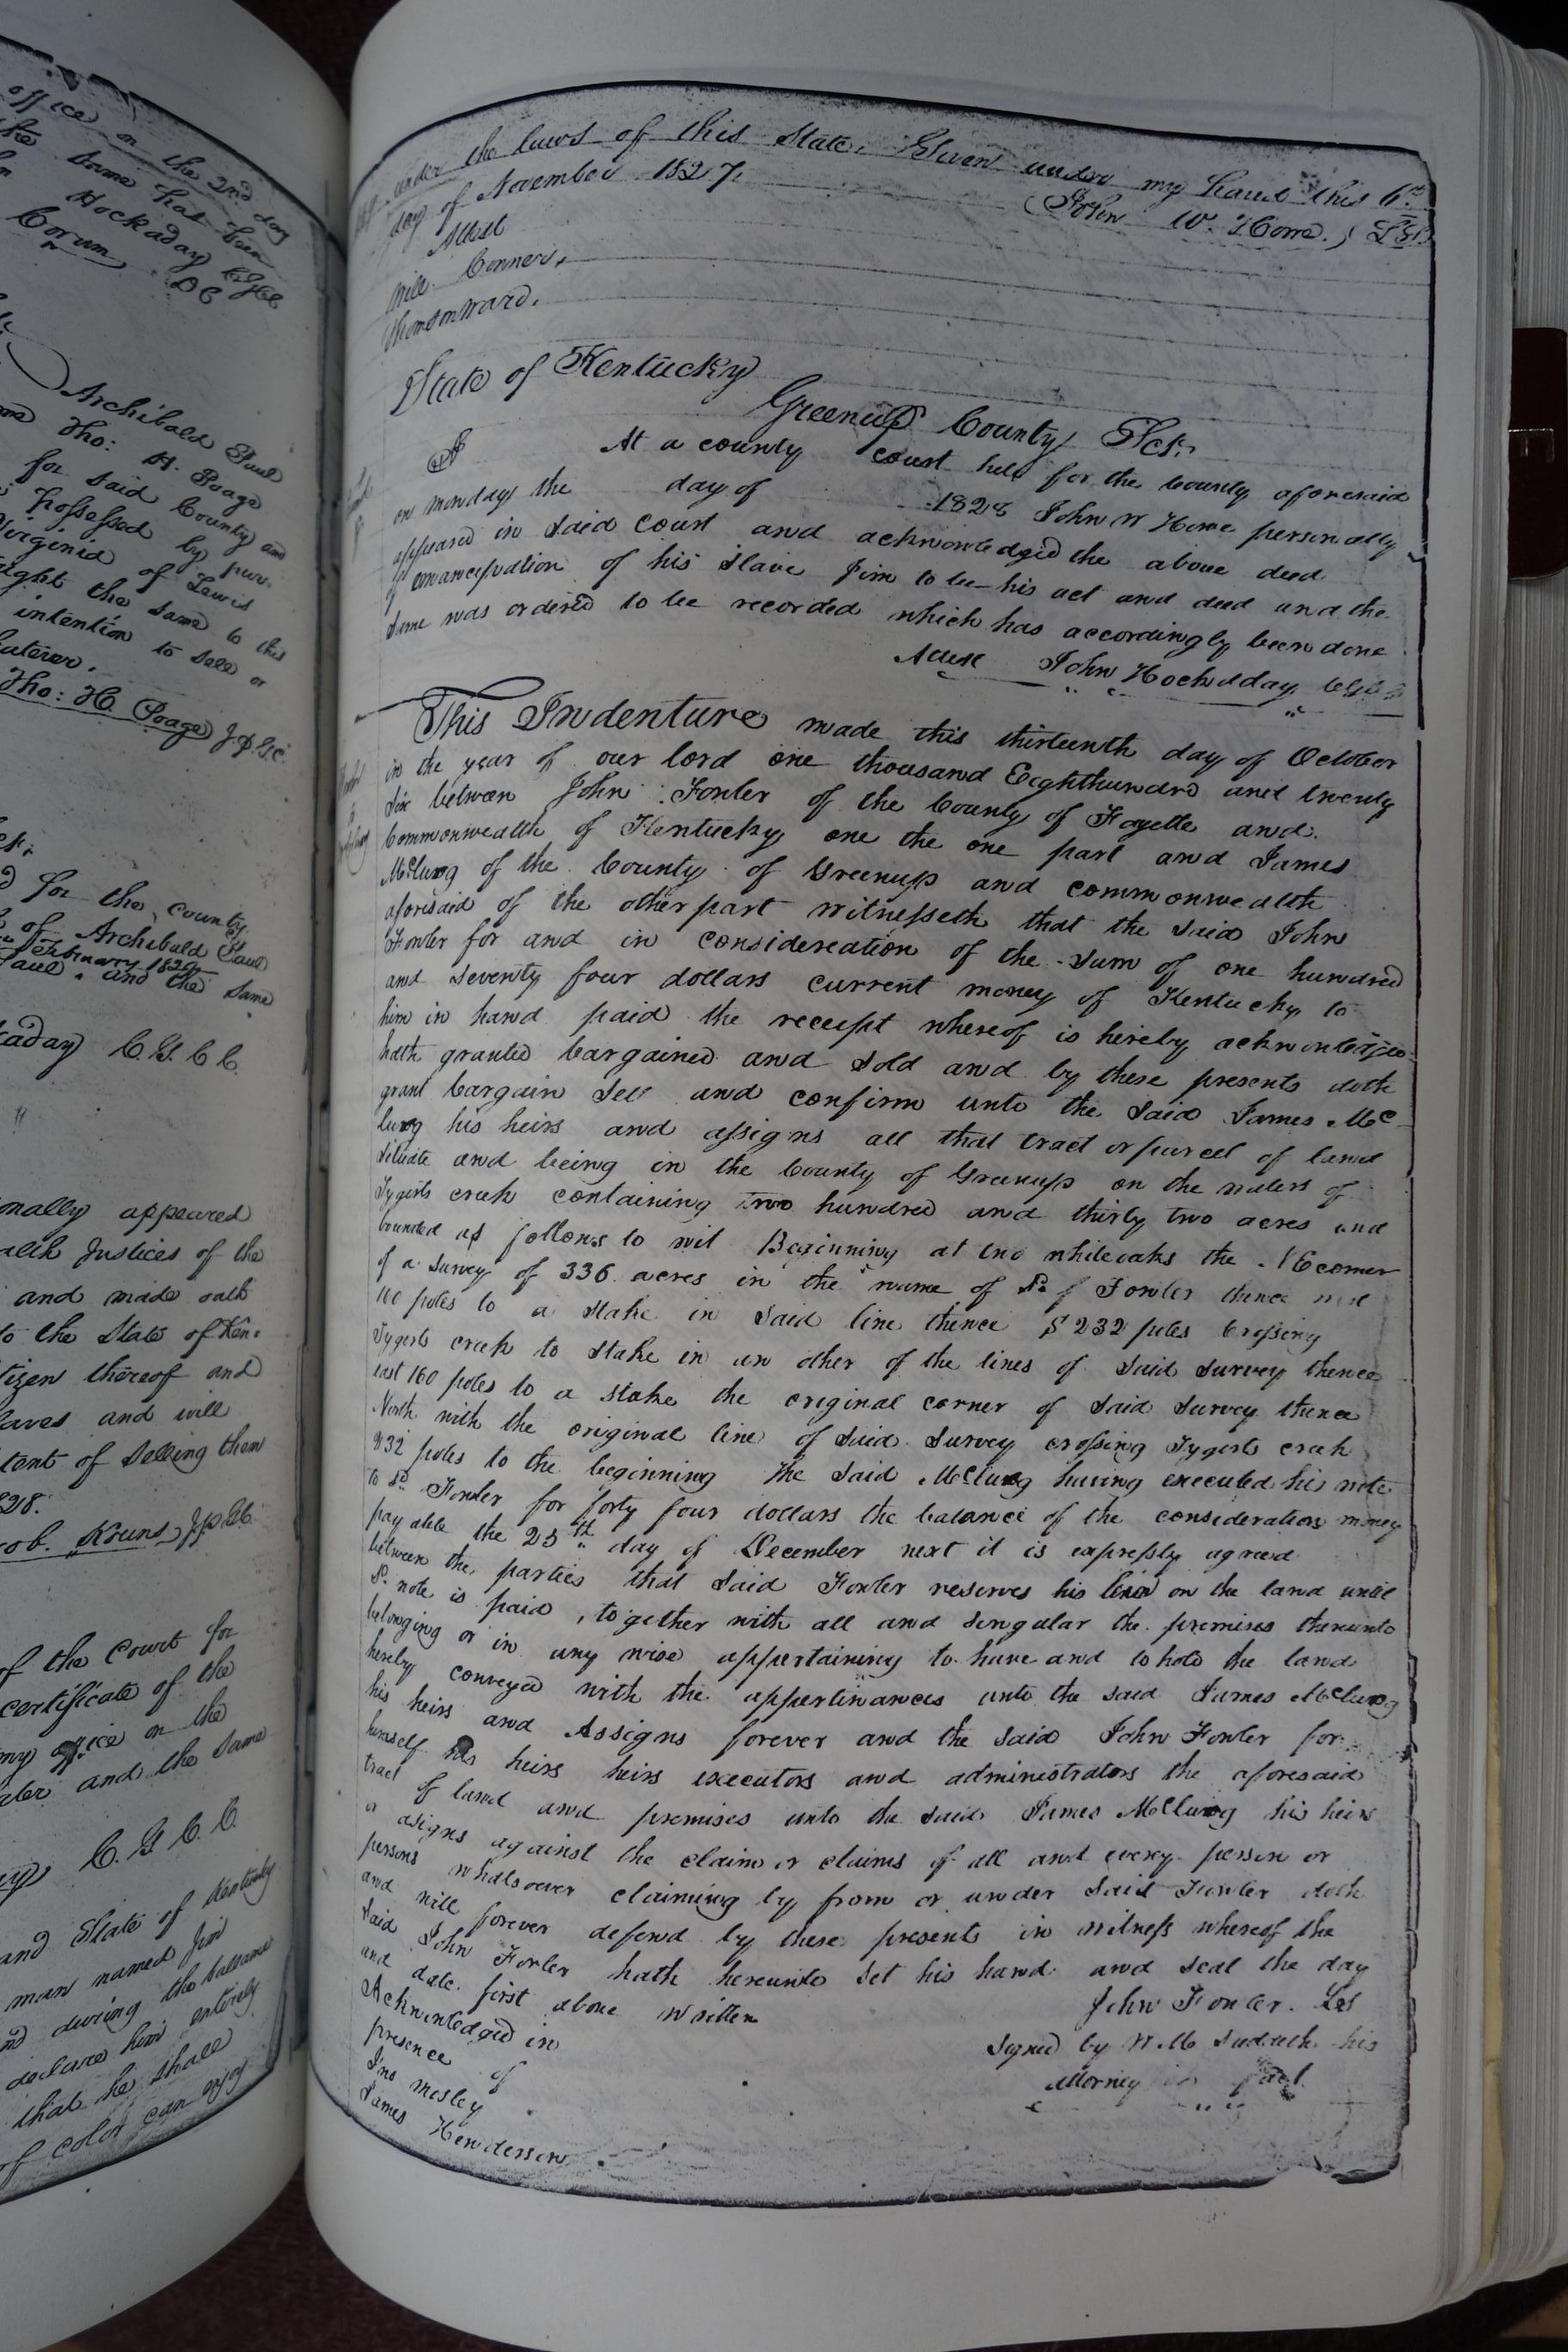 office on the 2nd day
the same has been
Hockaday
Corum DC
Archibald Paul
Tho: H. Poage
for said County and
possessed by pur-
Virginia of Lewis
the same to this
intention to sell or
Tho: H. Poage J.P.G.C.
for the county
of Archibald Paul
February 182
Paul and the same
C. G. C. C.
onally appeared
Justices of the
and made oath
to the State of Ken-
tizen thereof and
laves and will
tent of Selling them
828.
ob. Kouns J.P.G.C.
of the Court for
certificate of the
my office on the
and the same
C. G. C. C.
and State of Kentucky
man named Jim
during the ballance
declare him entirely
that he shall
of color can enjoy
under the laws of this State. Given under my hand this 6th
day of November 1827.
(John W. Howe.) LS
Attest
Will. Conner,
Thomson Ward.
State of Kentucky
Greenup County Sct.
At a county court held for the County aforesaid
on monday the day of 1828 John W Howe personally
appeared in said court and acknowledged the above deed
of emancipation of his slave Jim to be his act and deed and the
same was ordered to be recorded which has accordingly been done
Attest John Hockaday
This Indenture made this thirteenth day of October
in the year of our lord one thousand Eighthundred and twenty
six between John Fowler of the County of Fayette and
Commonwealth of Kentucky one the one part and James
McClung of the County of Greenup and commonwealth
aforesaid of the other part witnesseth that the said John
Fowler for and in considereation of the sum of one hundred
and seventy four dollars current money of Kentucky to
him in hand paid the receipt whereof is hereby acknowledged
hath granted bargained and sold and by these presents doth
grant bargain sell and confirm unto the said James Mc
lung his heirs and assigns all that tract or parcel of land
situate and being in the County of Greenup on the waters of
Tygerts creek containing two hundred and thirty two acres and
bounded as follows to wit Beginning at two whiteoaks the corner
of a survey of 336 acres in the name of Fowler thence west
160 poles to a stake in said line thence S 232 poles crossing
Tygerts creek to stake in an other of the lines of said survey thence
east 160 poles to a stake the original corner of said survey thence
North with the original line of said survey crossing Tygerts creek
232 poles to the beginning the said McClung having executed his note
to sd Fowler for forty four dollars the balance of the consideration money
payable the 25th day of December next it is expressly agreed
between the parties that said Fowler reserves his lein on the land until
sd note is paid, together with all and singular the premises thereunto
belonging or in any wise appertaining to have and to hold the land
hereby conveyed with the appertinances unto the said James McClung
his heirs and Assigns forever and the said John Fowler for
himself his heirs heirs executors and administrators the aforesaid
tract of land and premises unto the said James McClung his heirs
or asigns against the claim or claims of all and every person or
persons whatsoever claiming by from or under said Fowler doth
and will forever defend by these presents in witness whereof the
said John Fowler hath hereunto set his hand and seal the day
and date first above written
John Fowler. Ls
Acknowledged in
signed by W. M. his
presence of
attorney in fact
Jno Mosley
James Henderson